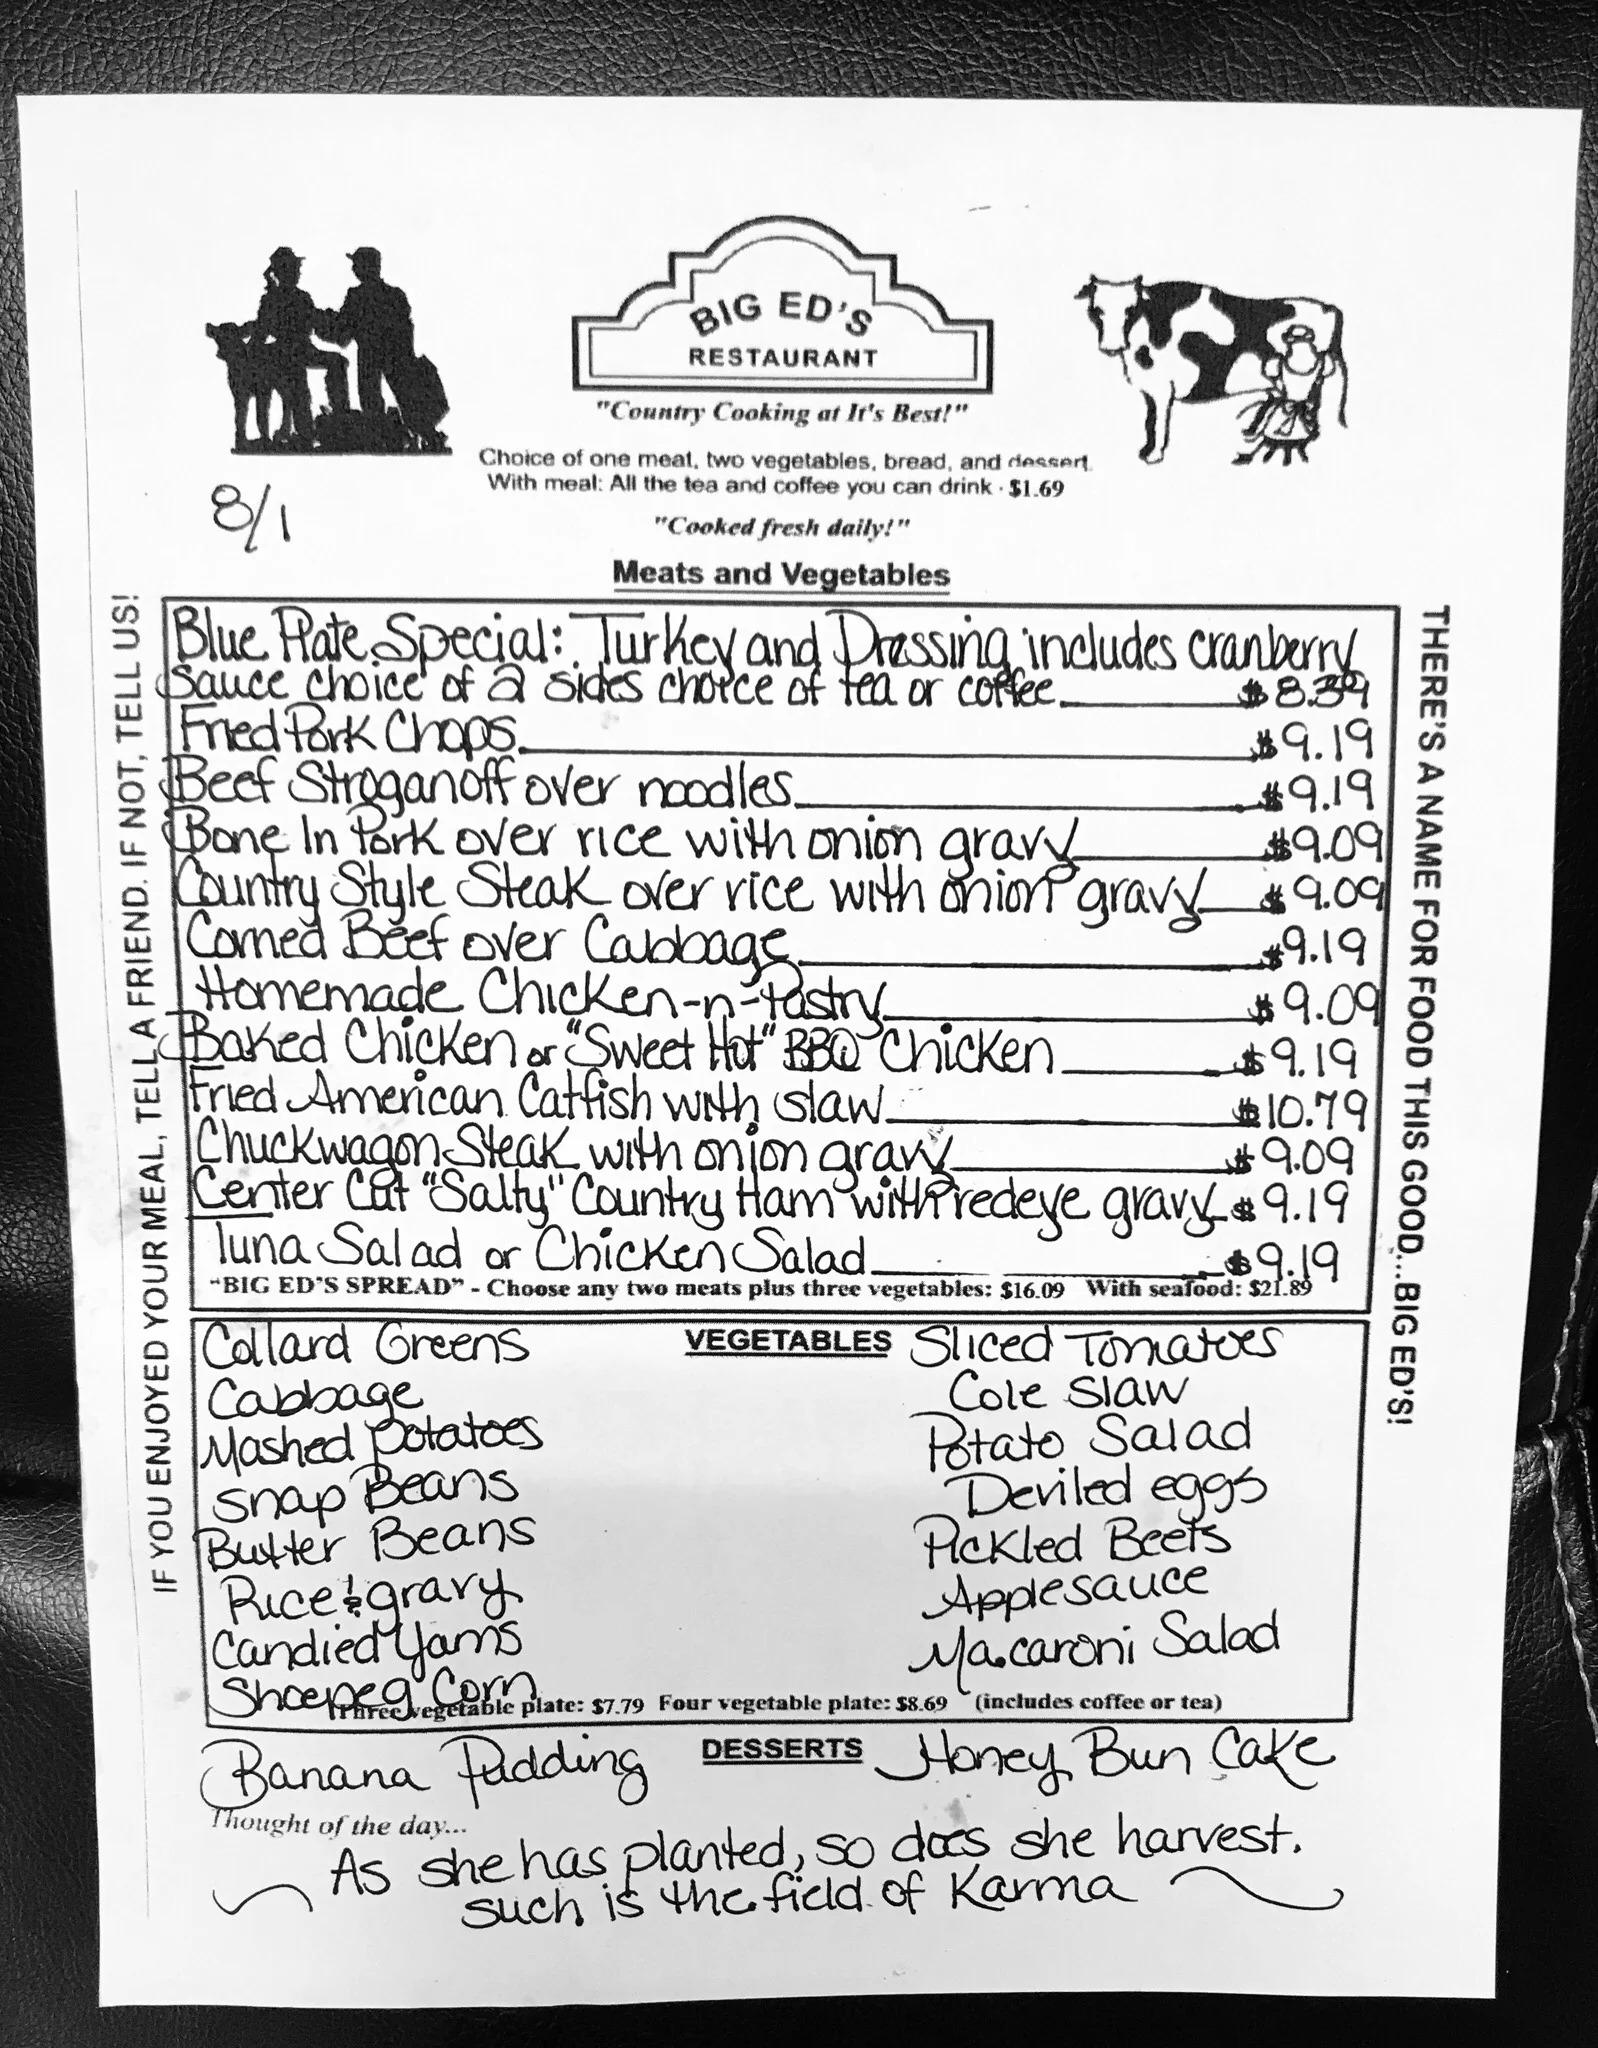 BIG ED'S
RESTAURANT
"Country Cooking at It's Best!"
Choice of one meat, two vegetables, bread, and dessert.
With meal: All the tea and coffee you can drink · $1.69
8/1
"Cooked fresh daily!"
Meats and Vegetables
Blue Plate Special: Turkey and Dressing includes cranberry
Sauce choice of 2 sides choice of tea or coffee $8.39
Fried Pork Chops $9.19
Beef Stroganoff over noodles $9.19
Bone In Pork over rice with onion gravy $9.09
Country Style Steak over rice with onion gravy $9.09
Corned Beef over Cabbage $9.19
Homemade Chicken-n-Pastry $9.09
Baked Chicken or "Sweet Hot" BBQ Chicken $9.19
Fried American Catfish with slaw $10.79
Chuckwagon Steak with onion gravy $9.09
Center Cut "Salty" Country Ham with redeye gravy $9.19
Tuna Salad or Chicken Salad $9.19
"BIG ED'S SPREAD" - Choose any two meats plus three vegetables: $16.09 With seafood: $21.89
VEGETABLES
Collard Greens
Cabbage
Mashed Potatoes
Snap Beans
Butter Beans
Rice & gravy
Candied Yams
Shoepeg Corn
Sliced Tomatoes
Cole Slaw
Potato Salad
Deviled eggs
Pickled Beets
Applesauce
Macaroni Salad
Three vegetable plate: $7.79 Four vegetable plate: $8.69 (includes coffee or tea)
DESSERTS
Banana Pudding
Honey Bun Cake
Thought of the day...
As she has planted, so does she harvest.
such is the field of Karma
IF YOU ENJOYED YOUR MEAL, TELL A FRIEND. IF NOT, TELL US!
THERE'S A NAME FOR FOOD THIS GOOD...BIG ED'S!